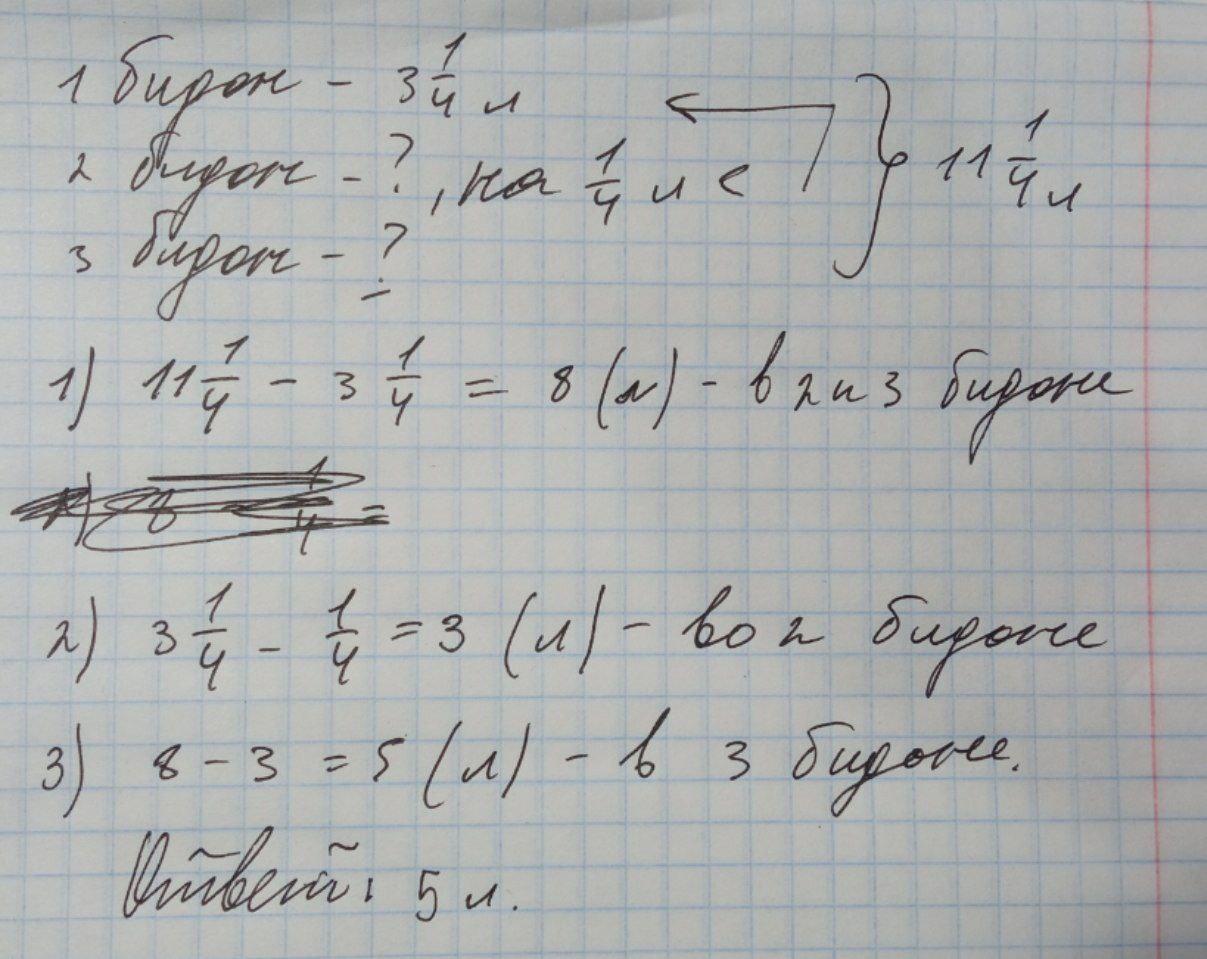 1 бидон - 3 1/4 л
2 бидон - ?, на 1/4 л <
3 бидон - ?
11 1/4 л
1) 11 1/4 - 3 1/4 = 8 (л) - в 2 и 3 бидоне
2) 3 1/4 - 1/4 = 3 (л) - во 2 бидоне
3) 8 - 3 = 5 (л) - в 3 бидоне.
Ответ: 5 л.